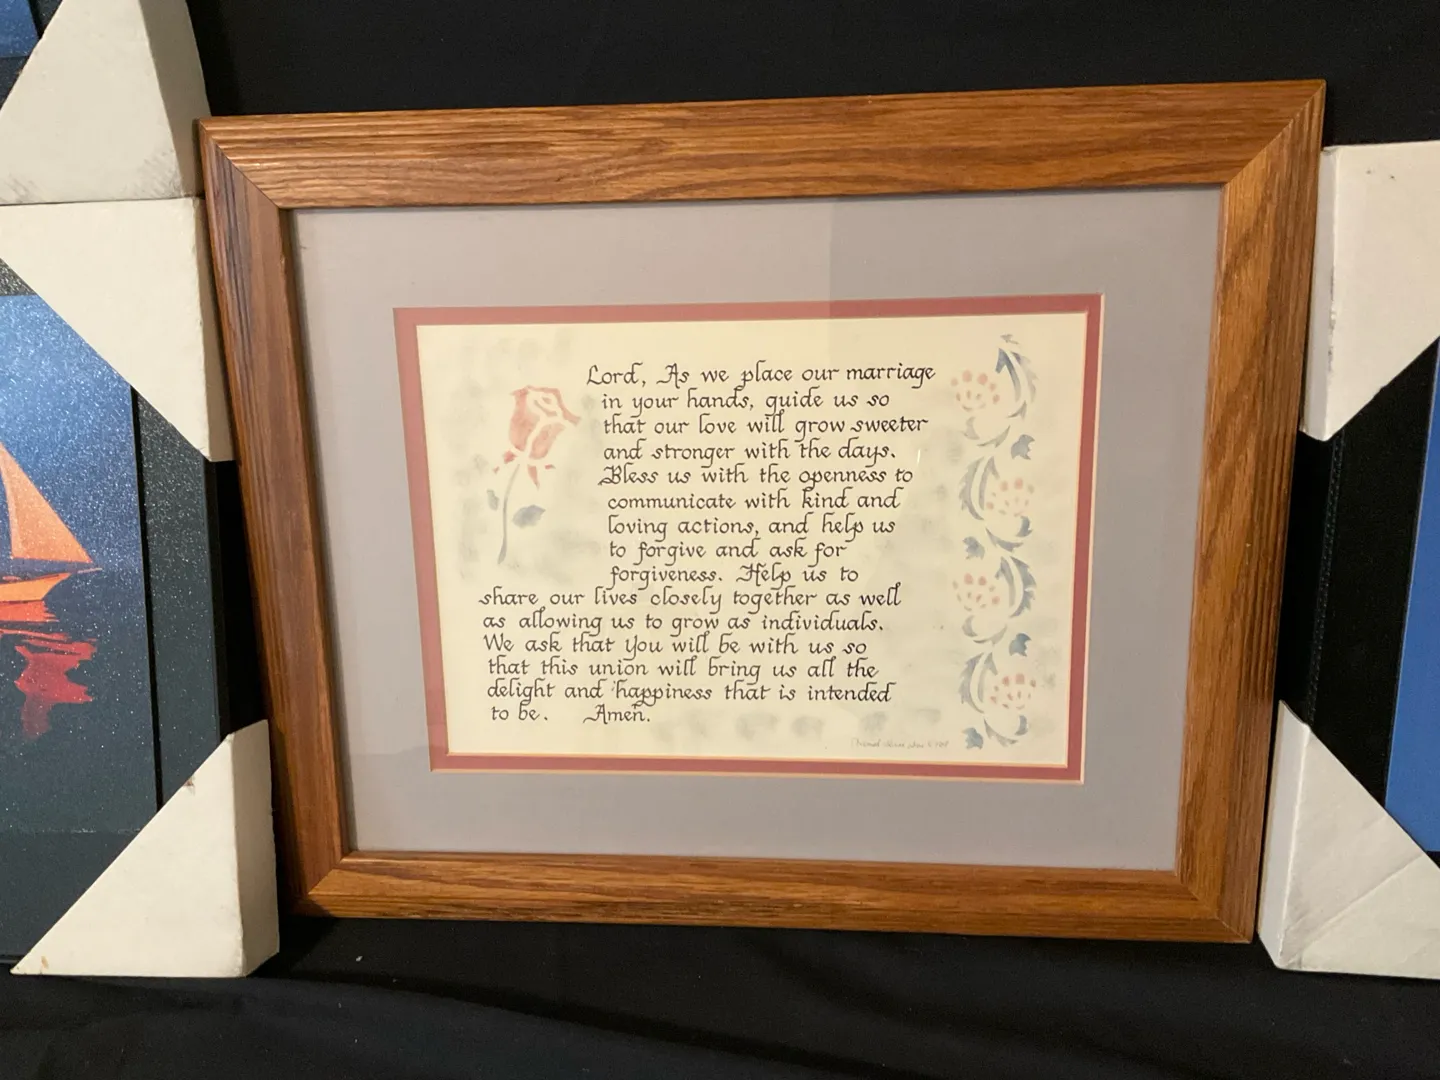 Lord, As we place our marriage
in your hands, guide us so
that our love will grow sweeter
and stronger with the days.
Bless us with the openness to
communicate with kind and
loving actions, and help us
to forgive and ask for
forgiveness. Help us to
share our lives closely together as well
as allowing us to grow as individuals.
We ask that You will be with us so
that this union will bring us all the
delight and happiness that is intended
to be. Amen.